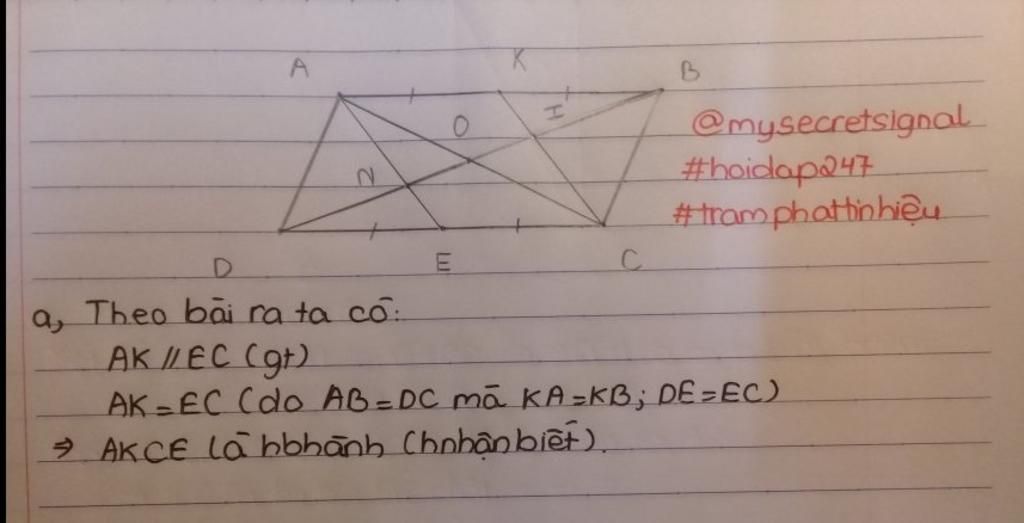 A K B
O I
N
D E C
@mysecretsignal
#hoidap247
#tramphattinhiệu
a, Theo bài ra ta có:
AK // EC (gt)
AK = EC (do AB = DC mà KA = KB; DE = EC)
⇒ AKCE là hbhành (hnhận biết).